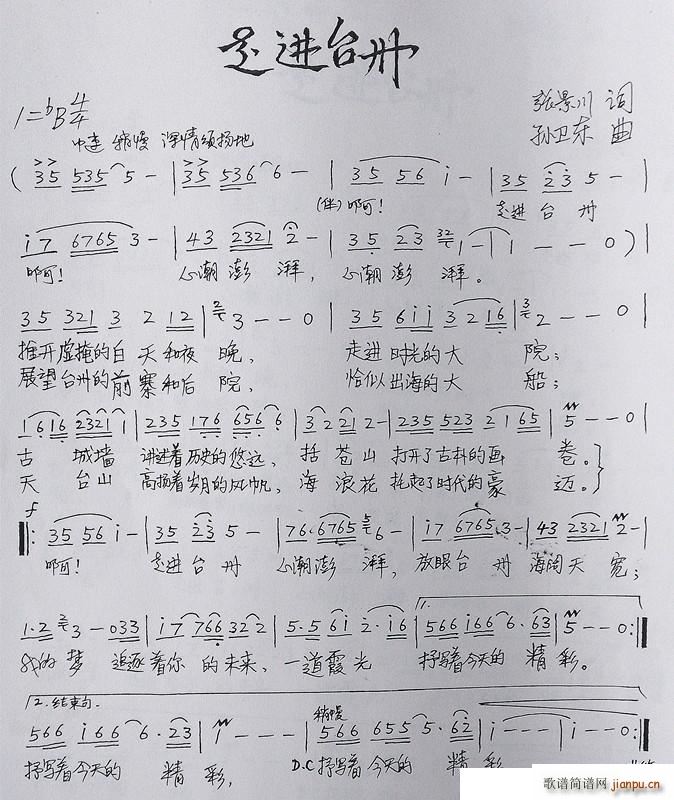 走进台州
1=♭B 4/4
张景川 词
中速 稍慢 深情颂扬地
孙卫东 曲
( 35 535 5 - | 35 536 6 - | 35 56 i - | 35 23 5 - |
(伴)啊! 走进台州
i7 6765 3 - | 43 2321 2 - | 35 23 32 1 - | 1 - - - 0 ) |
啊! 心潮澎湃, 心潮澎湃。
35 321 3 2 12 | 2 3 - - 0 | 35 6ii 3 2 16 | 3 2 - - 0 |
推开虚掩的白天和夜晚, 走进时光的大院;
展望台州的前寨和后院, 恰似出海的大船;
1616 2321 1 | 235 176 656 6 | 3 2 21 2 - | 235 523 2 165 | 5 - - 0 |
古城墙 讲述着历史的悠远, 括苍山 打开了古朴的画卷。
天台山 高扬着岁月的风帆, 海浪花 托起了时代的豪迈。
f
35 56 i - | 35 23 5 - | 76· 6765 5 6 - | i7 6765 3 - | 43 2321 2 - |
啊! 走进台州 心潮澎湃, 放眼台州 海阔天宽;
1·2 2 3 - 033 | i7 766 32 2 | 5·5 6i 2·i6 | 566 i66 6·63 | 5 - - 0 :|
1.
我的梦 追逐着你的未来, 一道霞光 抒写着今天的精彩。
2.结束句.
稍慢
566 i66 6·23 | i - - - | 566 655 5·62 | i - - - | i - - 0 :|
抒写着今天的精彩, D.C 抒写着今天的精彩
歌谱简谱网
jianpu.cn